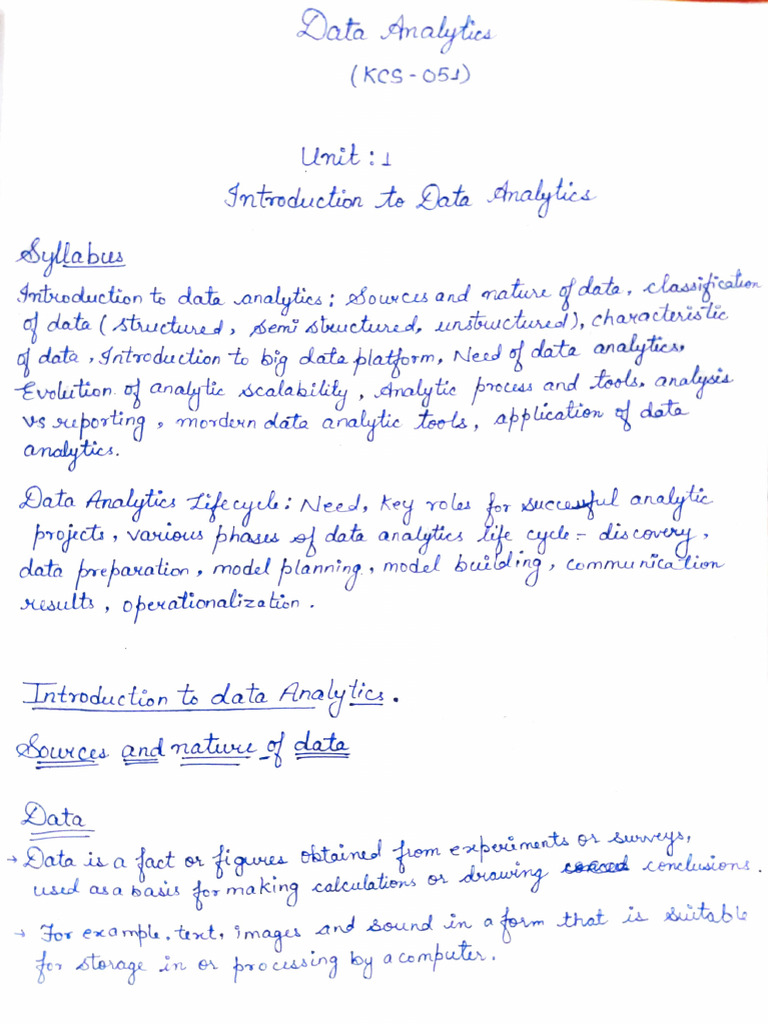 Data Analytics
(KCS-051)
Unit : 1
Introduction to Data Analytics
Syllabus
Introduction to data analytics: Sources and nature of data, classification
of data (structured, semi structured, unstructured), characteristic
of data, Introduction to big data platform, Need of data analytics,
Evolution of analytic scalability, analytic process and tools, analysis
vs reporting, mordern data analytic tools, application of data
analytics.
Data Analytics Lifecycle: Need, key roles for successful analytic
projects, various phases of data analytics life cycle - discovery,
data preparation, model planning, model building, communication
results, operationalization.
Introduction to data Analytics.
Sources and nature of data
Data
→ Data is a fact or figures obtained from experiments or surveys,
used as a basis for making calculations or drawing conclusions.
→ For example, text, images and sound in a form that is suitable
for storage in or processing by a computer.